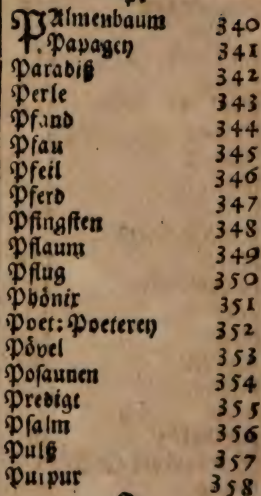 PAlmenbaum 340
Papagey 341
Paradiß 342
Perle 343
Pfand 344
Pfau 345
Pfeil 346
Pferd 347
Pfingsten 348
Pflaum 349
Pflug 350
Phönix 351
Poet: Poeterey 352
Pövel 353
Posaunen 354
Predigt 355
Psalm 356
Pulß 357
Purpur 358